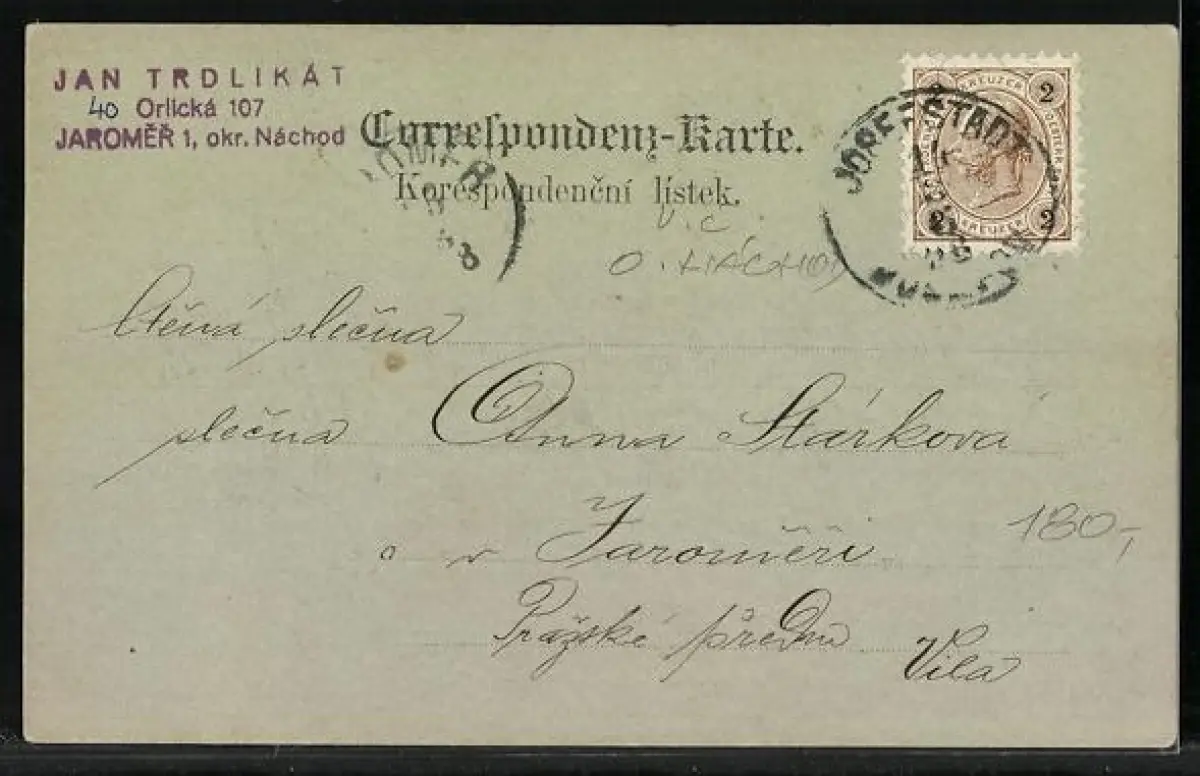 JAN TRDLIKÁT
40 Orlická 107
JAROMĚŘ 1, okr. Náchod
Correspondenz-Karte.
Korespondenční lístek.
V. Č.
O. NÁCHOD
JOSEFSTADT
2 KREUZER 2
2 KREUZER 2
Ctěná slečna
slečna Anna Stárková
v Jaroměři
180,-
Pražské předm
Vila